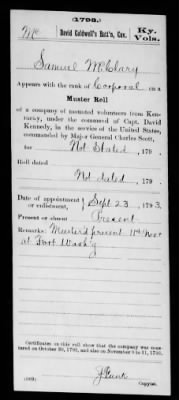 (1793.)
Mc David Caldwell's Batt'n, Cav. Ky. Vols.
Samuel McClary
Appears with the rank of Corporal on a
Muster Roll
of a company of mounted volunteers from Kentucky, under the command of Capt. David Kennedy, in the service of the United States, commanded by Major General Charles Scott,
for Not Stated, 179 .
Roll dated
Not dated, 179 .
Date of appointment or enlistment, Sept 23, 1793.
Present or absent Present
Remarks: Muster'd present 11th Nov'r
at Fort Wash'g
Certificates on this roll show that the company was mustered on October
(602)
Copyist.